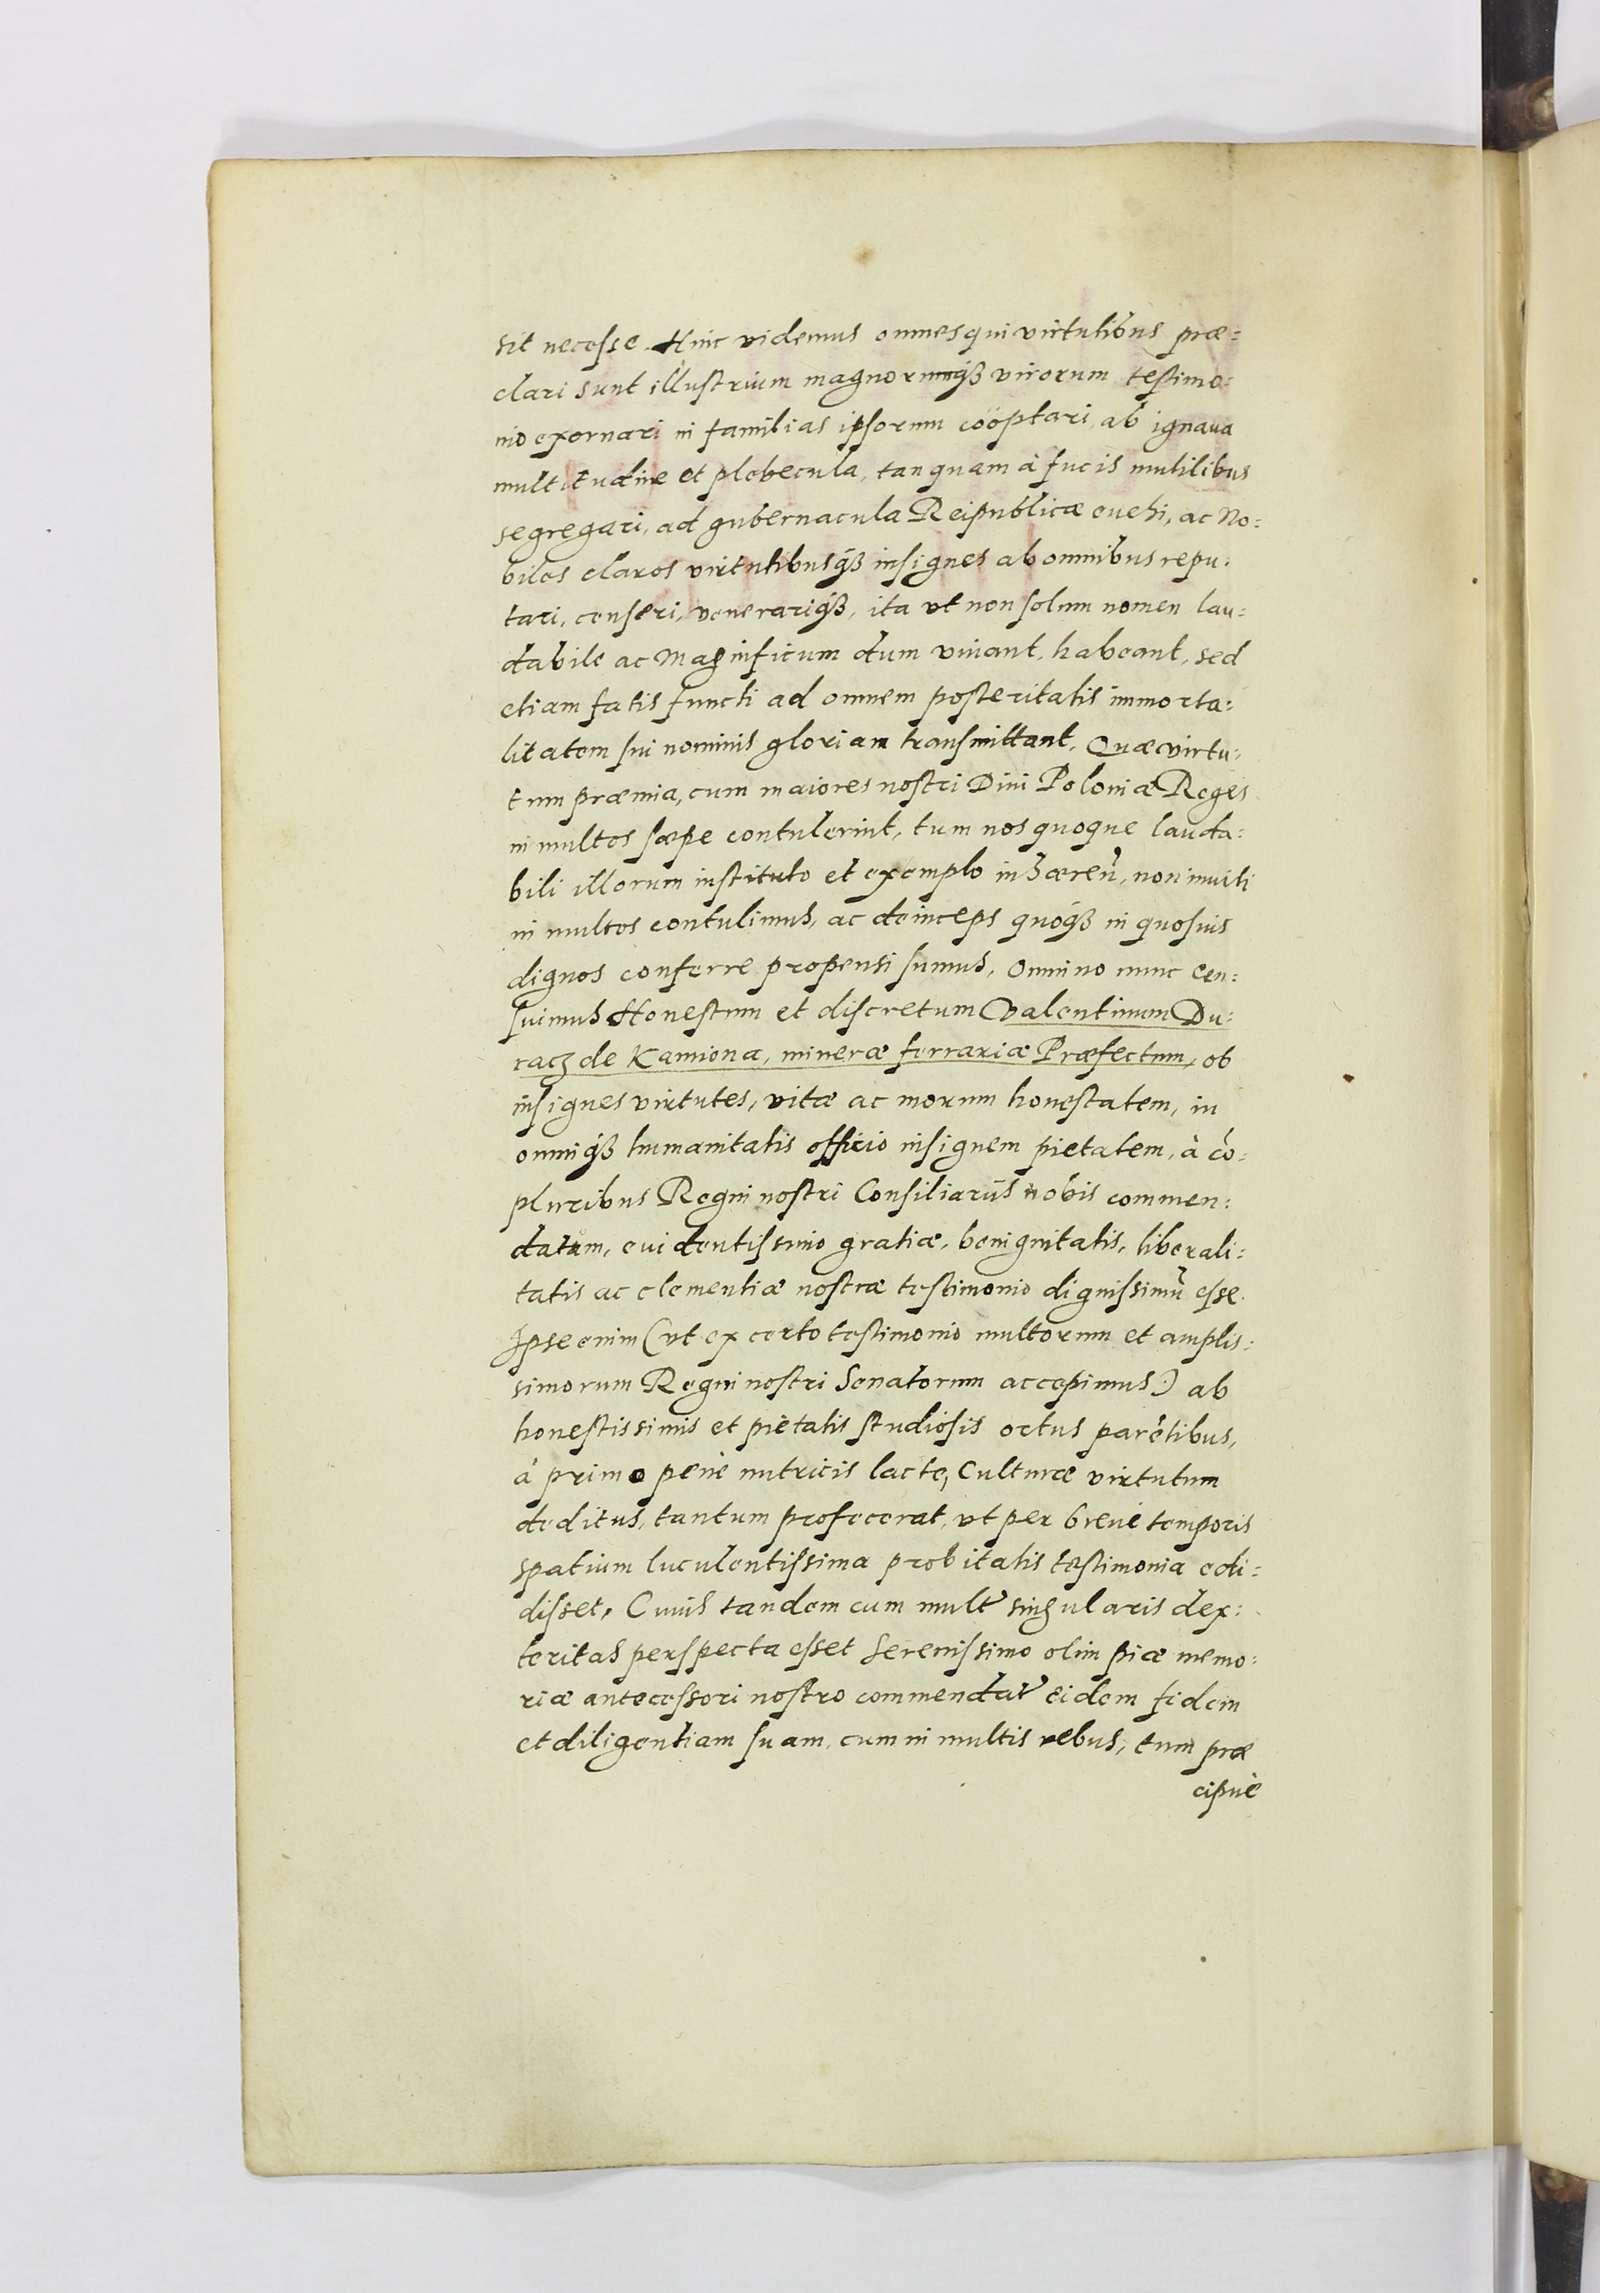 sit necesse. Hinc videmus omnes qui virtutibus præ=
clari sunt illustrium magnorumq́ꝫ virorum testimo=
nio exornari in familias ipsorum cooptari, ab ignaua
multitudine et plebecula, tanquam à fucis inutilibus
segregari, ad gubernacula Reipublicæ euehi, ac No=
biles claros virtutibusq́ꝫ insignes ab omnibus repu=
tari, censeri, venerariq́ꝫ, ita vt non solum nomen lau=
dabile ac Magnificum dum viuant, habeant, sed
etiam fatis functi ad omnem posteritatis immorta=
litatem sui nominis gloriam transmittant. Quæ virtu=
tum præmia, cum maiores nostri Diui Poloniæ Reges
in multos sæpe contulerint, tum nos quoque lauda=
bili illorum instituto et exemplo inhæren̄, non inuiti
in multos contulimus, ac deinceps quoq́ꝫ in quosuis
dignos conferre propensi sumus, Omnino nunc cen=
suimus Honestum et discretum Valentinum Du=
racz de Kamiona, mineræ ferrariæ Præfectum, ob
insignes virtutes, vitæ ac morum honestatem, in
omniq́ꝫ humanitatis officio insignem pietatem, à cō=
pluribus Regni nostri Consiliariis nobis commen=
datum, euidentissimo gratiæ, benignitatis, liberali=
tatis ac clementiæ nostræ testimonio dignissimū esse.
Ipse enim (vt ex certo testimonio multorum et amplis=
simorum Regni nostri Senatorum accepimus) ab
honestissimis et pietatis studiosis ortus parētibus,
à primo penè nutricis lacte, Culturæ virtutum
deditus, tantum profecerat, vt per breue temporis
spatium luculentissima probitatis testimonia edi=
disset, Cuius tandem cum mult̄ singularis dex=
teritas perspecta esset Serenissimo olim piæ memo=
riæ antecessori nostro commendat̄ eidem fidem
et diligentiam suam, cum in multis rebus, tum præ
cipuè